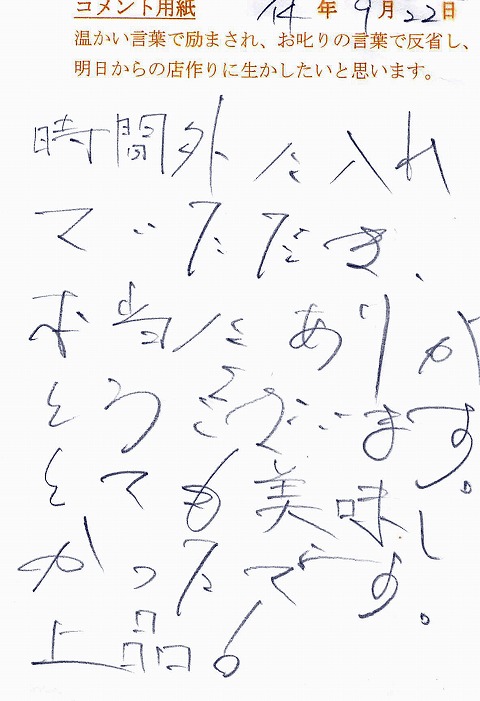 コメント用紙 14年9月22日
温かい言葉で励まされ、お叱りの言葉で反省し、
明日からの店作りに生かしたいと思います。
時間外に入れ
ていただき、
本当にありが
とうございます。
とても美味し
かったです。
上品